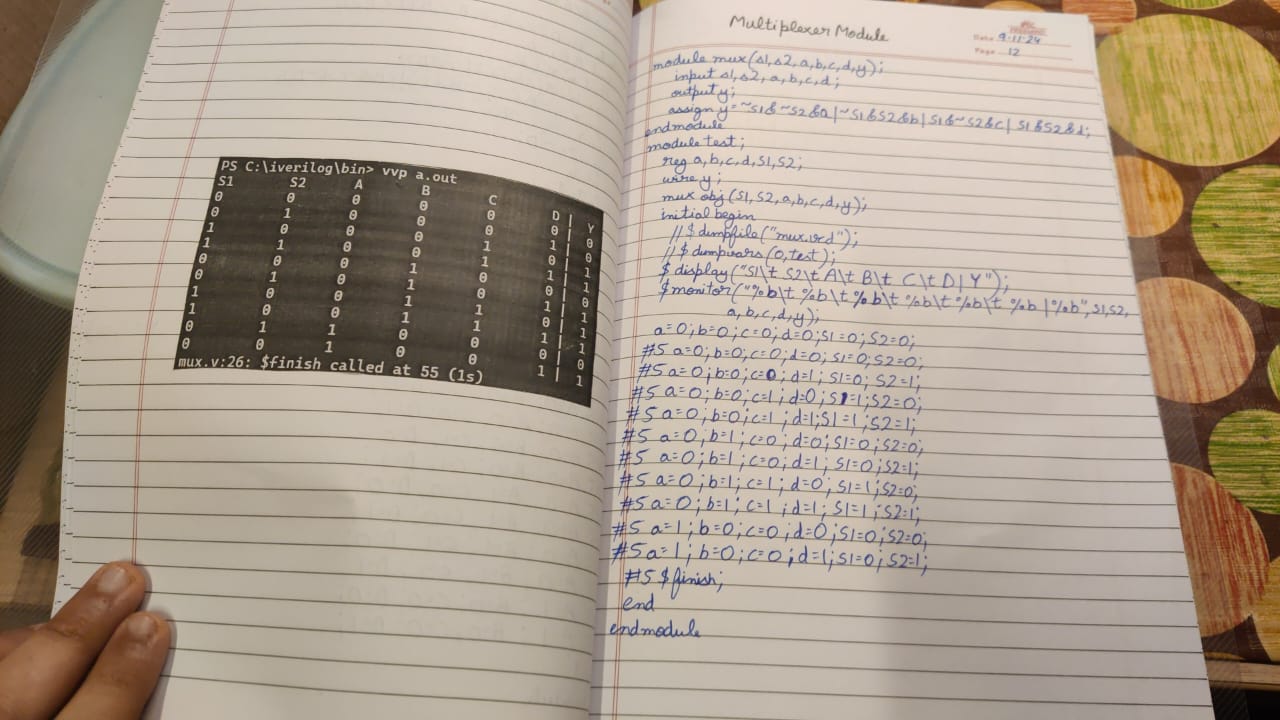 PS C:\iverilog\bin> vvp a.out
S1 S2 A B C D | Y
0 0 0 0 0 0 | 0
0 1 0 0 0 1 | 0
1 0 0 0 1 0 | 1
1 1 0 0 1 1 | 1
0 0 0 1 0 0 | 0
0 1 0 1 0 1 | 1
1 0 0 1 1 0 | 1
1 0 0 1 1 1 | 1
0 1 1 0 0 0 | 0
0 0 1 0 0 1 | 1
mux.v:26: $finish called at 55 (1s)
Multiplexer Module
Date 9.11.24
Page 12
module mux(s1,s2,a,b,c,d,y);
input s1,s2,a,b,c,d;
output y;
assign y=~S1&~S2&a|~S1&S2&b|S1&~S2&c|S1&S2&d;
endmodule
module test;
reg a,b,c,d,S1,S2;
wire y;
mux obj(S1,S2,a,b,c,d,y);
initial begin
//$dumpfile("mux.vcd");
//$dumpvars(0,test);
$display("S1\t S2\t A\t B\t C\t D|Y");
$monitor("%b\t %b\t %b\t %b\t %b\t %b |%b",S1,S2,
a,b,c,d,y);
a=0;b=0;c=0;d=0;S1=0;S2=0;
#5 a=0;b=0;c=0;d=0;S1=0;S2=0;
#5 a=0;b=0;c=0;d=1;S1=0;S2=1;
#5 a=0;b=0;c=1;d=0;S1=1;S2=0;
#5 a=0;b=0;c=1;d=1;S1=1;S2=1;
#5 a=0;b=1;c=0;d=0;S1=0;S2=0;
#5 a=0;b=1;c=0;d=1;S1=0;S2=1;
#5 a=0;b=1;c=1;d=0;S1=1;S2=0;
#5 a=0;b=1;c=1;d=1;S1=1;S2=1;
#5 a=1;b=0;c=0;d=0;S1=0;S2=0;
#5 a=1;b=0;c=0;d=1;S1=0;S2=1;
#5 $finish;
end
endmodule